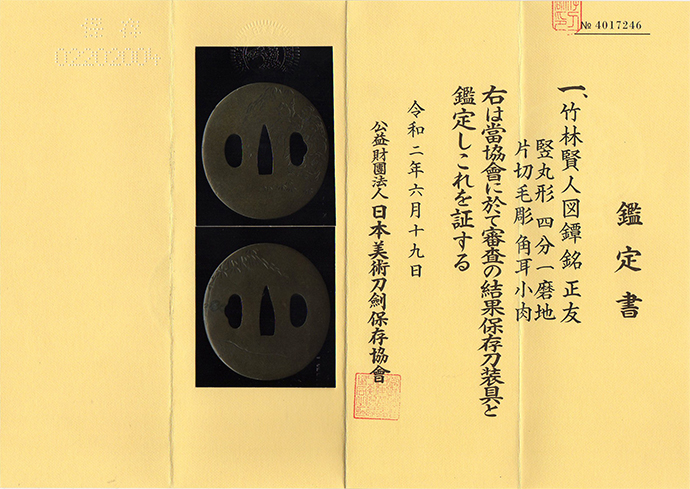 № 4017246
鑑定書
一、竹林賢人図鐔 銘 正友
竪丸形 四分一磨地
片切毛彫 角耳小肉
右は當協會に於て審査の結果保存刀装具と
鑑定しこれを証する
令和二年六月十九日
公益財團法人 日本美術刀劍保存協會
保存
02202004